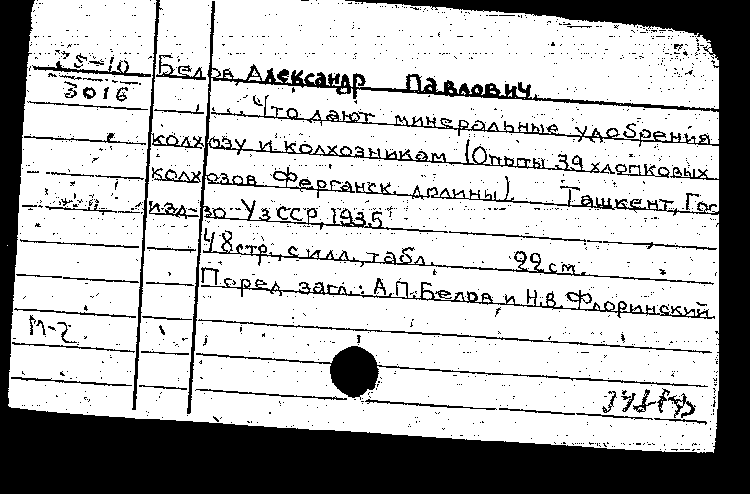 25-10
3016
Белов, Александр Павлович.
... Что дают минеральные удобрения
колхозу и колхозникам (Опыты 39 хлопковых
колхозов Ферганск. долины). Ташкент, Гос
изд-во УзССР, 1935
48 стр., с илл., табл. 22 см.
Перед загл.: А.П. Белов и Н.В. Флоринский.
М-2